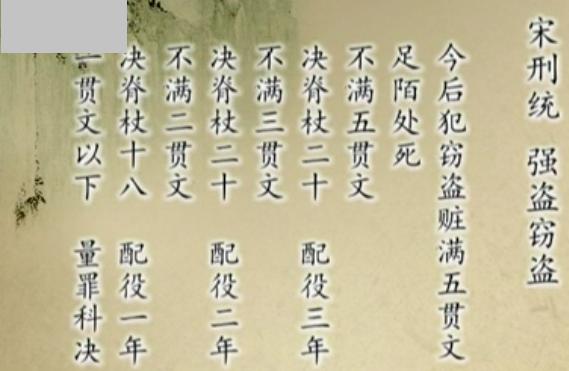 宋刑统 强盗窃盗
今后犯窃盗赃满五贯文
足陌处死
不满五贯文
决脊杖二十 配役三年
不满三贯文
决脊杖二十 配役二年
不满二贯文
决脊杖十八 配役一年
一贯文以下 量罪科决